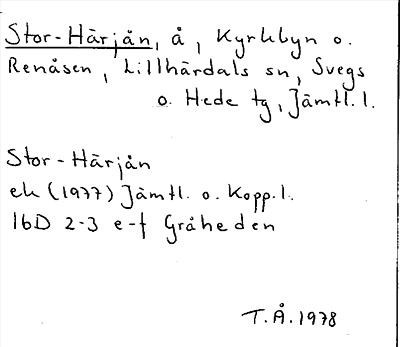 Stor-Härjån, å, Kyrkbyn o.
Renåsen, Lillhärdals sn, Svegs
o. Hede tg, Jämtl. l.
Stor-Härjån
ek (1977) Jämtl. o. Kopp. l.
16D 2-3 e-f Gråheden
T.Å. 1978